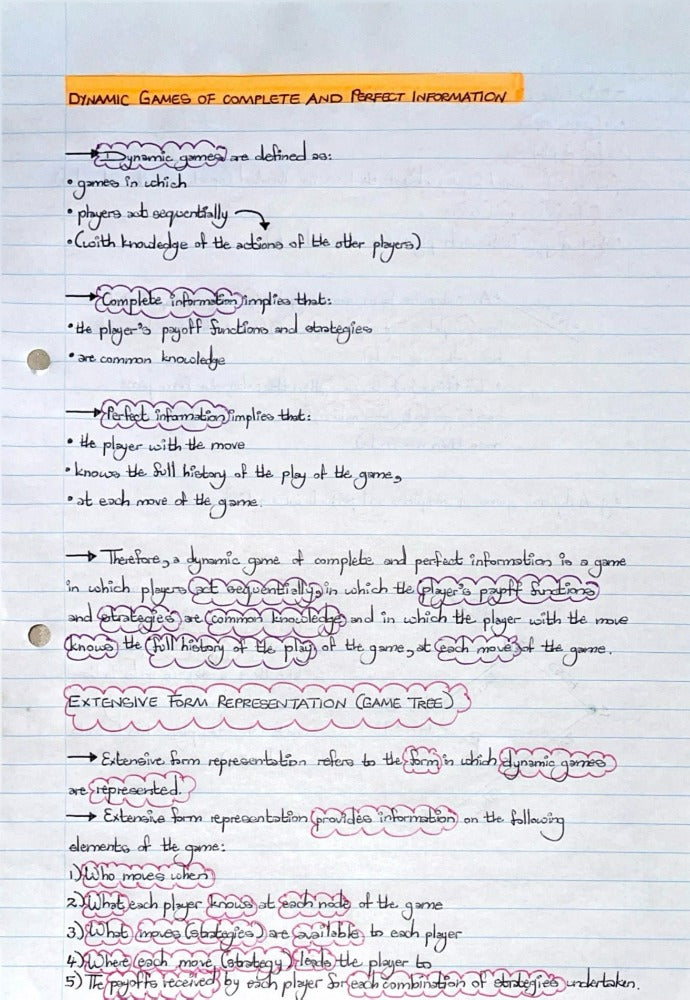 DYNAMIC GAMES OF COMPLETE AND PERFECT INFORMATION
→ Dynamic games are defined as:
• games in which
• players act sequentially
• (with knowledge of the actions of the other players)
→ Complete information implies that:
• the player's payoff functions and strategies
• are common knowledge
→ Perfect information implies that:
• the player with the move
• knows the full history of the play of the game,
• at each move of the game.
→ Therefore, a dynamic game of complete and perfect information is a game
in which players act sequentially, in which the player's payoff functions
and strategies are common knowledge and in which the player with the move
knows the full history of the play of the game, at each move of the game.
EXTENSIVE FORM REPRESENTATION (GAME TREE)
→ Extensive form representation refers to the form in which dynamic games
are represented.
→ Extensive form representation provides information on the following
elements of the game:
1) Who moves when
2) What each player knows at each node of the game
3) What moves (strategies) are available to each player
4) Where each move (strategy) leads the player to
5) The payoffs received by each player for each combination of strategies undertaken.